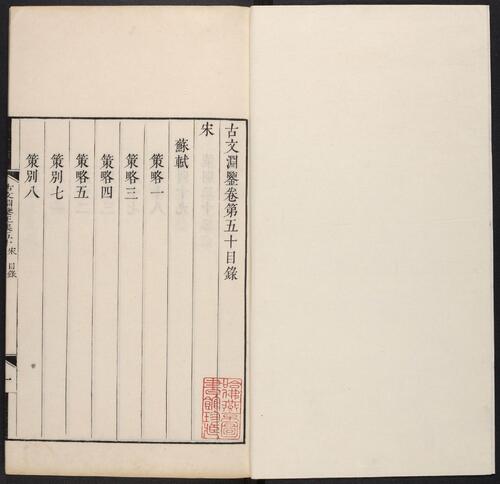 古文淵鑒卷第五十目錄
宋
蘇軾
策略一
策略三
策略四
策略五
策別七
策別八
古文淵鑒 卷五十 宋 目錄
一
哈佛燕京圖書館珍藏